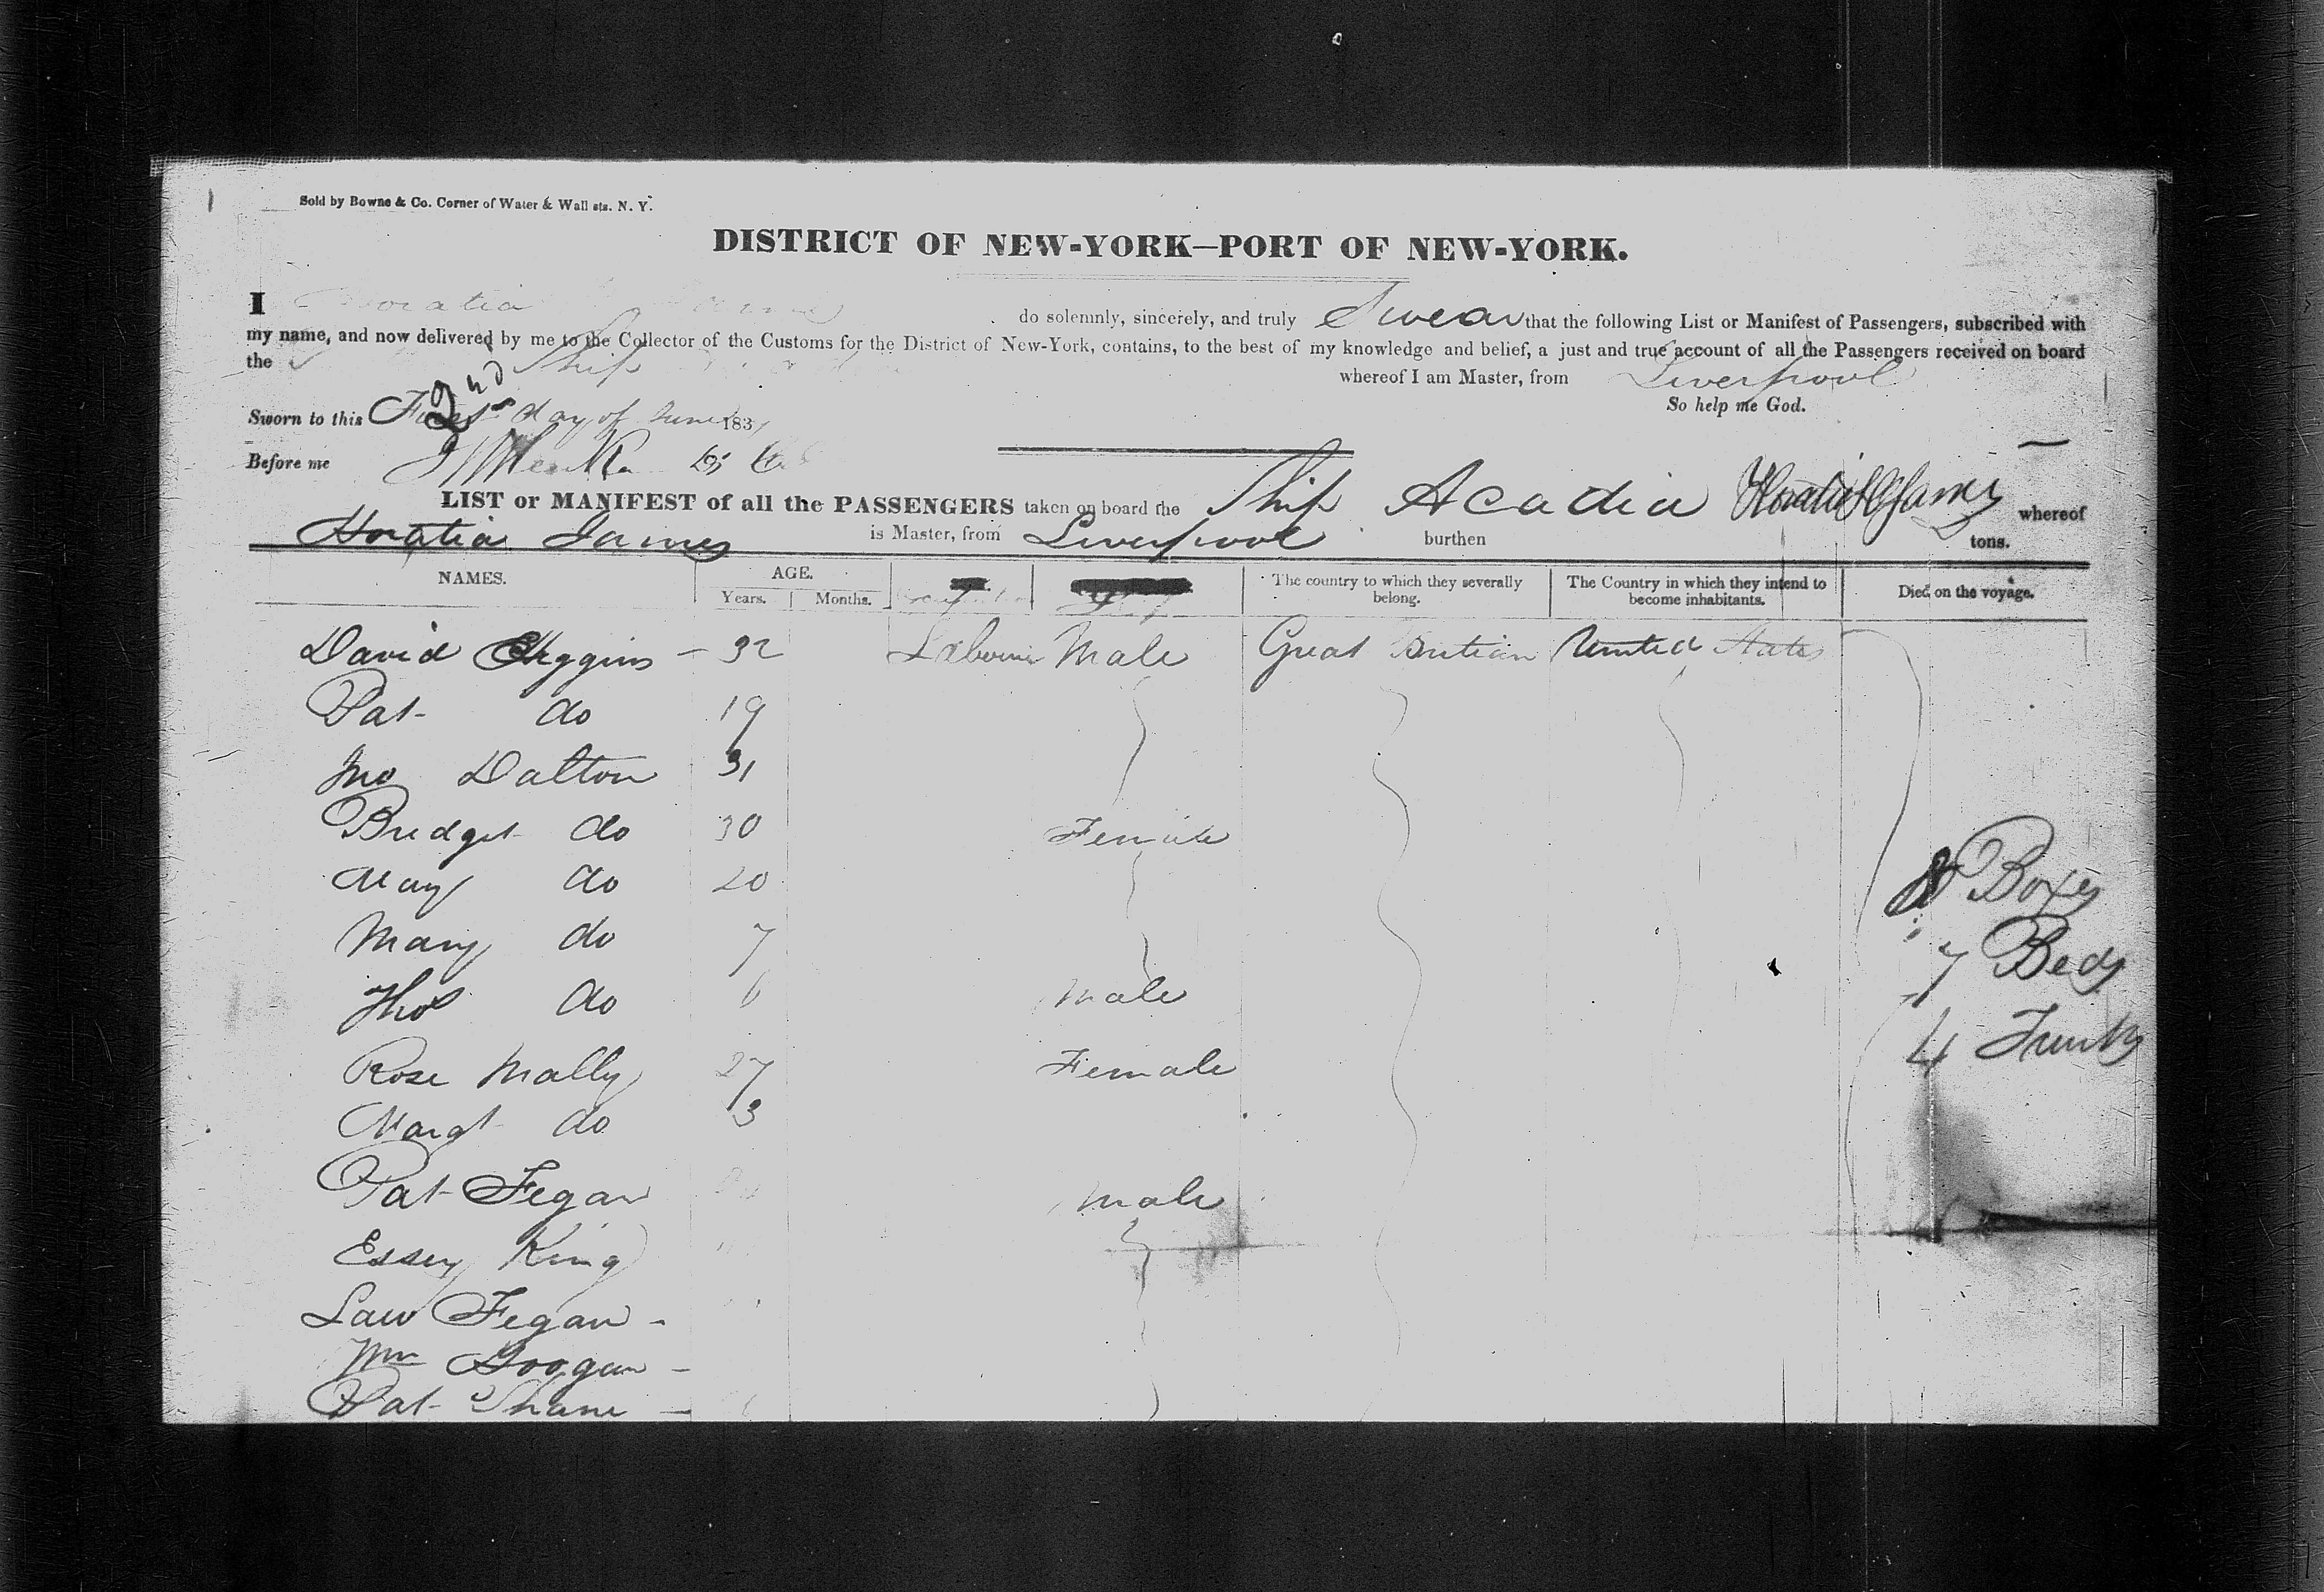 Sold by Bowne & Co. Corner of Water & Wall sts. N. Y.
DISTRICT OF NEW-YORK—PORT OF NEW-YORK.
I Horatia do solemnly, sincerely, and truly Swear that the following List or Manifest of Passengers, subscribed with
my name, and now delivered by me to the Collector of the Customs for the District of New-York, contains, to the best of my knowledge and belief, a just and true account of all the Passengers received on board
the Ship whereof I am Master, from Liverpool
So help me God.
Sworn to this 2nd day of June 183
Before me
LIST or MANIFEST of all the PASSENGERS taken on board the Ship Acadia whereof
Horatia James is Master, from Liverpool burthen tons.
NAMES. AGE. The country to which they severally belong. The Country in which they intend to become inhabitants. Died on the voyage.
Years. Months.
David Higgins - 32 Labourer Male Great Britian United States
Pat do 19
Jno Dalton 31
Bridget do 30 Female
Mary do 20
Mary do 7
Thos do 6 Male
Rose Mally 27 Female
Margt do 3
Pat Fegan Male
Essey King
Law Fegan -
Wm Googan -
Pat Shane -
8 Boxes
7 Beds
4 Trunks